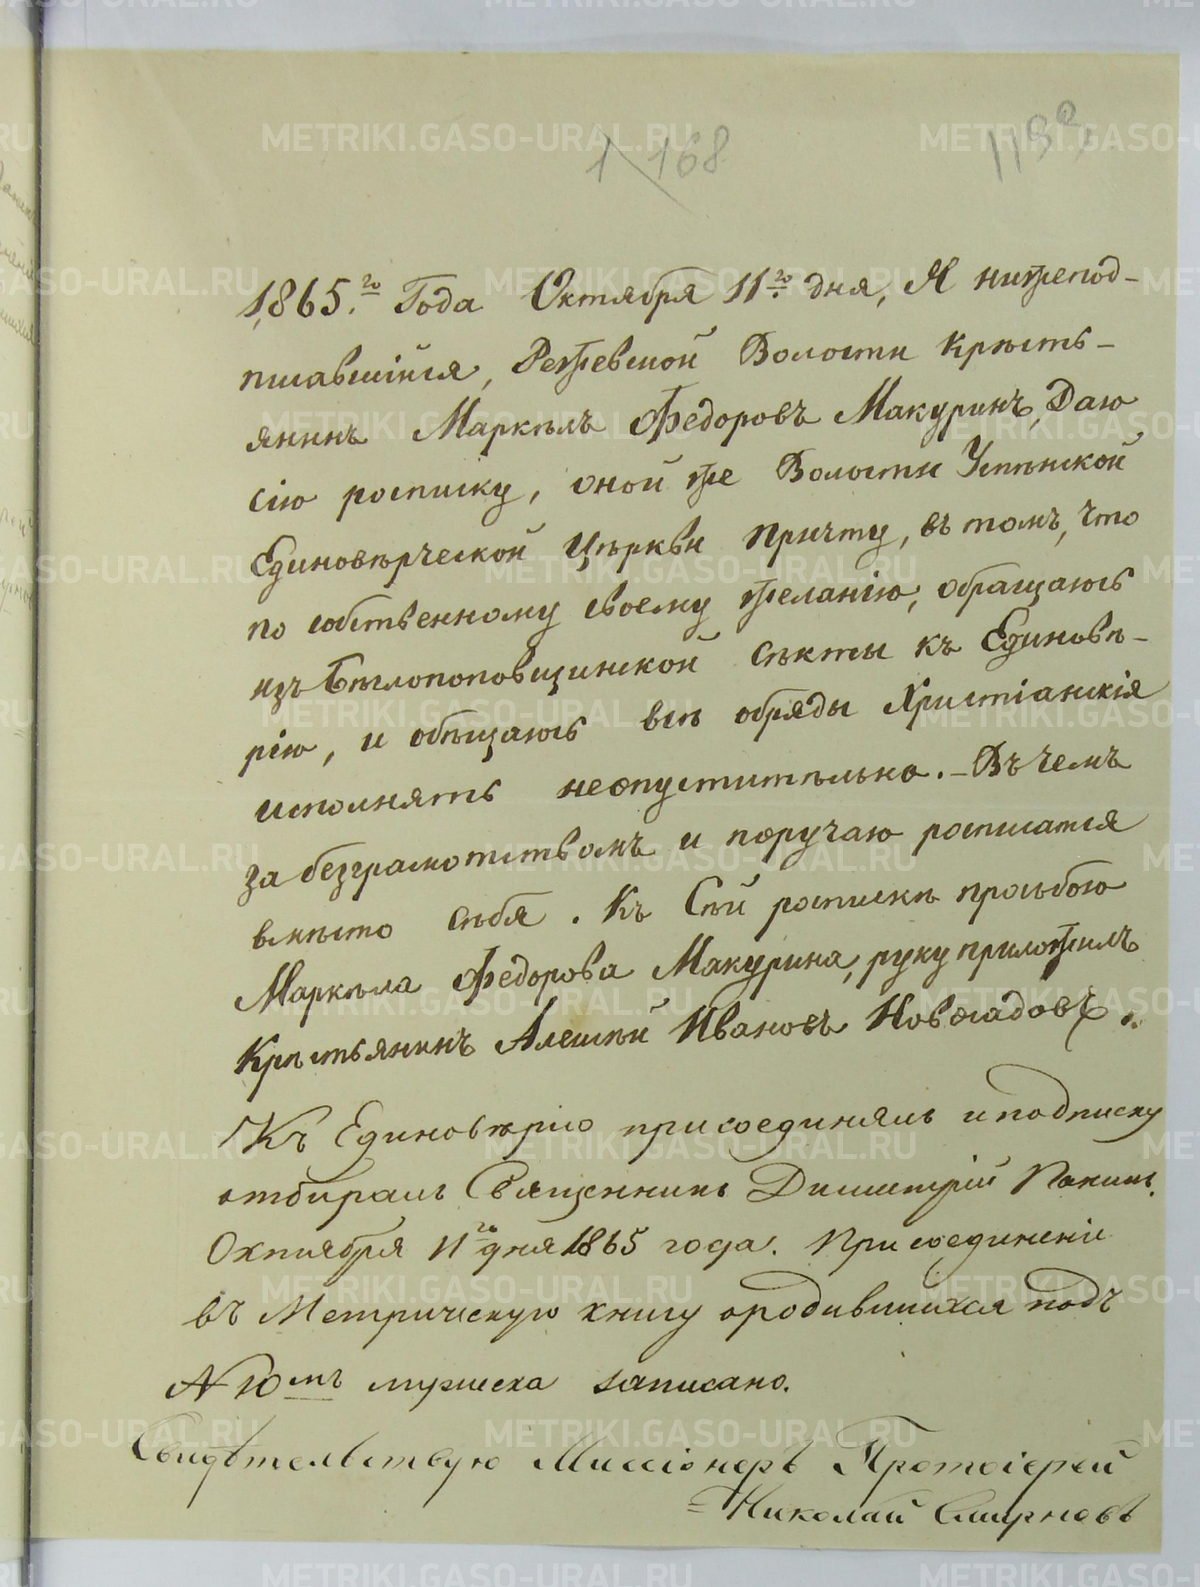 1 168
1865.го Года Октября 11.го дня, Я нижепод-
писавшійся, Режевской Волости Крѣсть-
янинъ Маркѣлъ Федоровъ Макуринъ, Даю
сію росписку, оной же Волости Успѣнской
Единовѣрческой Цѣркви Причту, въ томъ, что
по собственному своему желанію, обращаюсь
изъ Бѣглопоповщинской сѣкты къ Единовѣ-
рію, и обѣщаюсь всѣ обряды Христіанскія
исполнять неопустительно. - Въ чемъ
за безграмотствомъ и поручаю росписатся
вмѣсто сѣбя. Къ Сѣй роспискѣ просьбою
Маркѣла Федорова Макурина, руку приложилъ
Крѣстьянинъ Алексѣй Ивановъ Новосадовъ.
Къ Единовѣрію присоединялъ и подписку
отбиралъ Священникъ Димитрій
Октября 11го дня 1865 года. Присоединеніе
въ Метрическую книгу о родившихся подъ
№ 10мъ мужеска записано.
Свидѣтельствую Миссіонеръ Протоіерей
Николай Смирновъ
METRIKI.GASO-URAL.RU